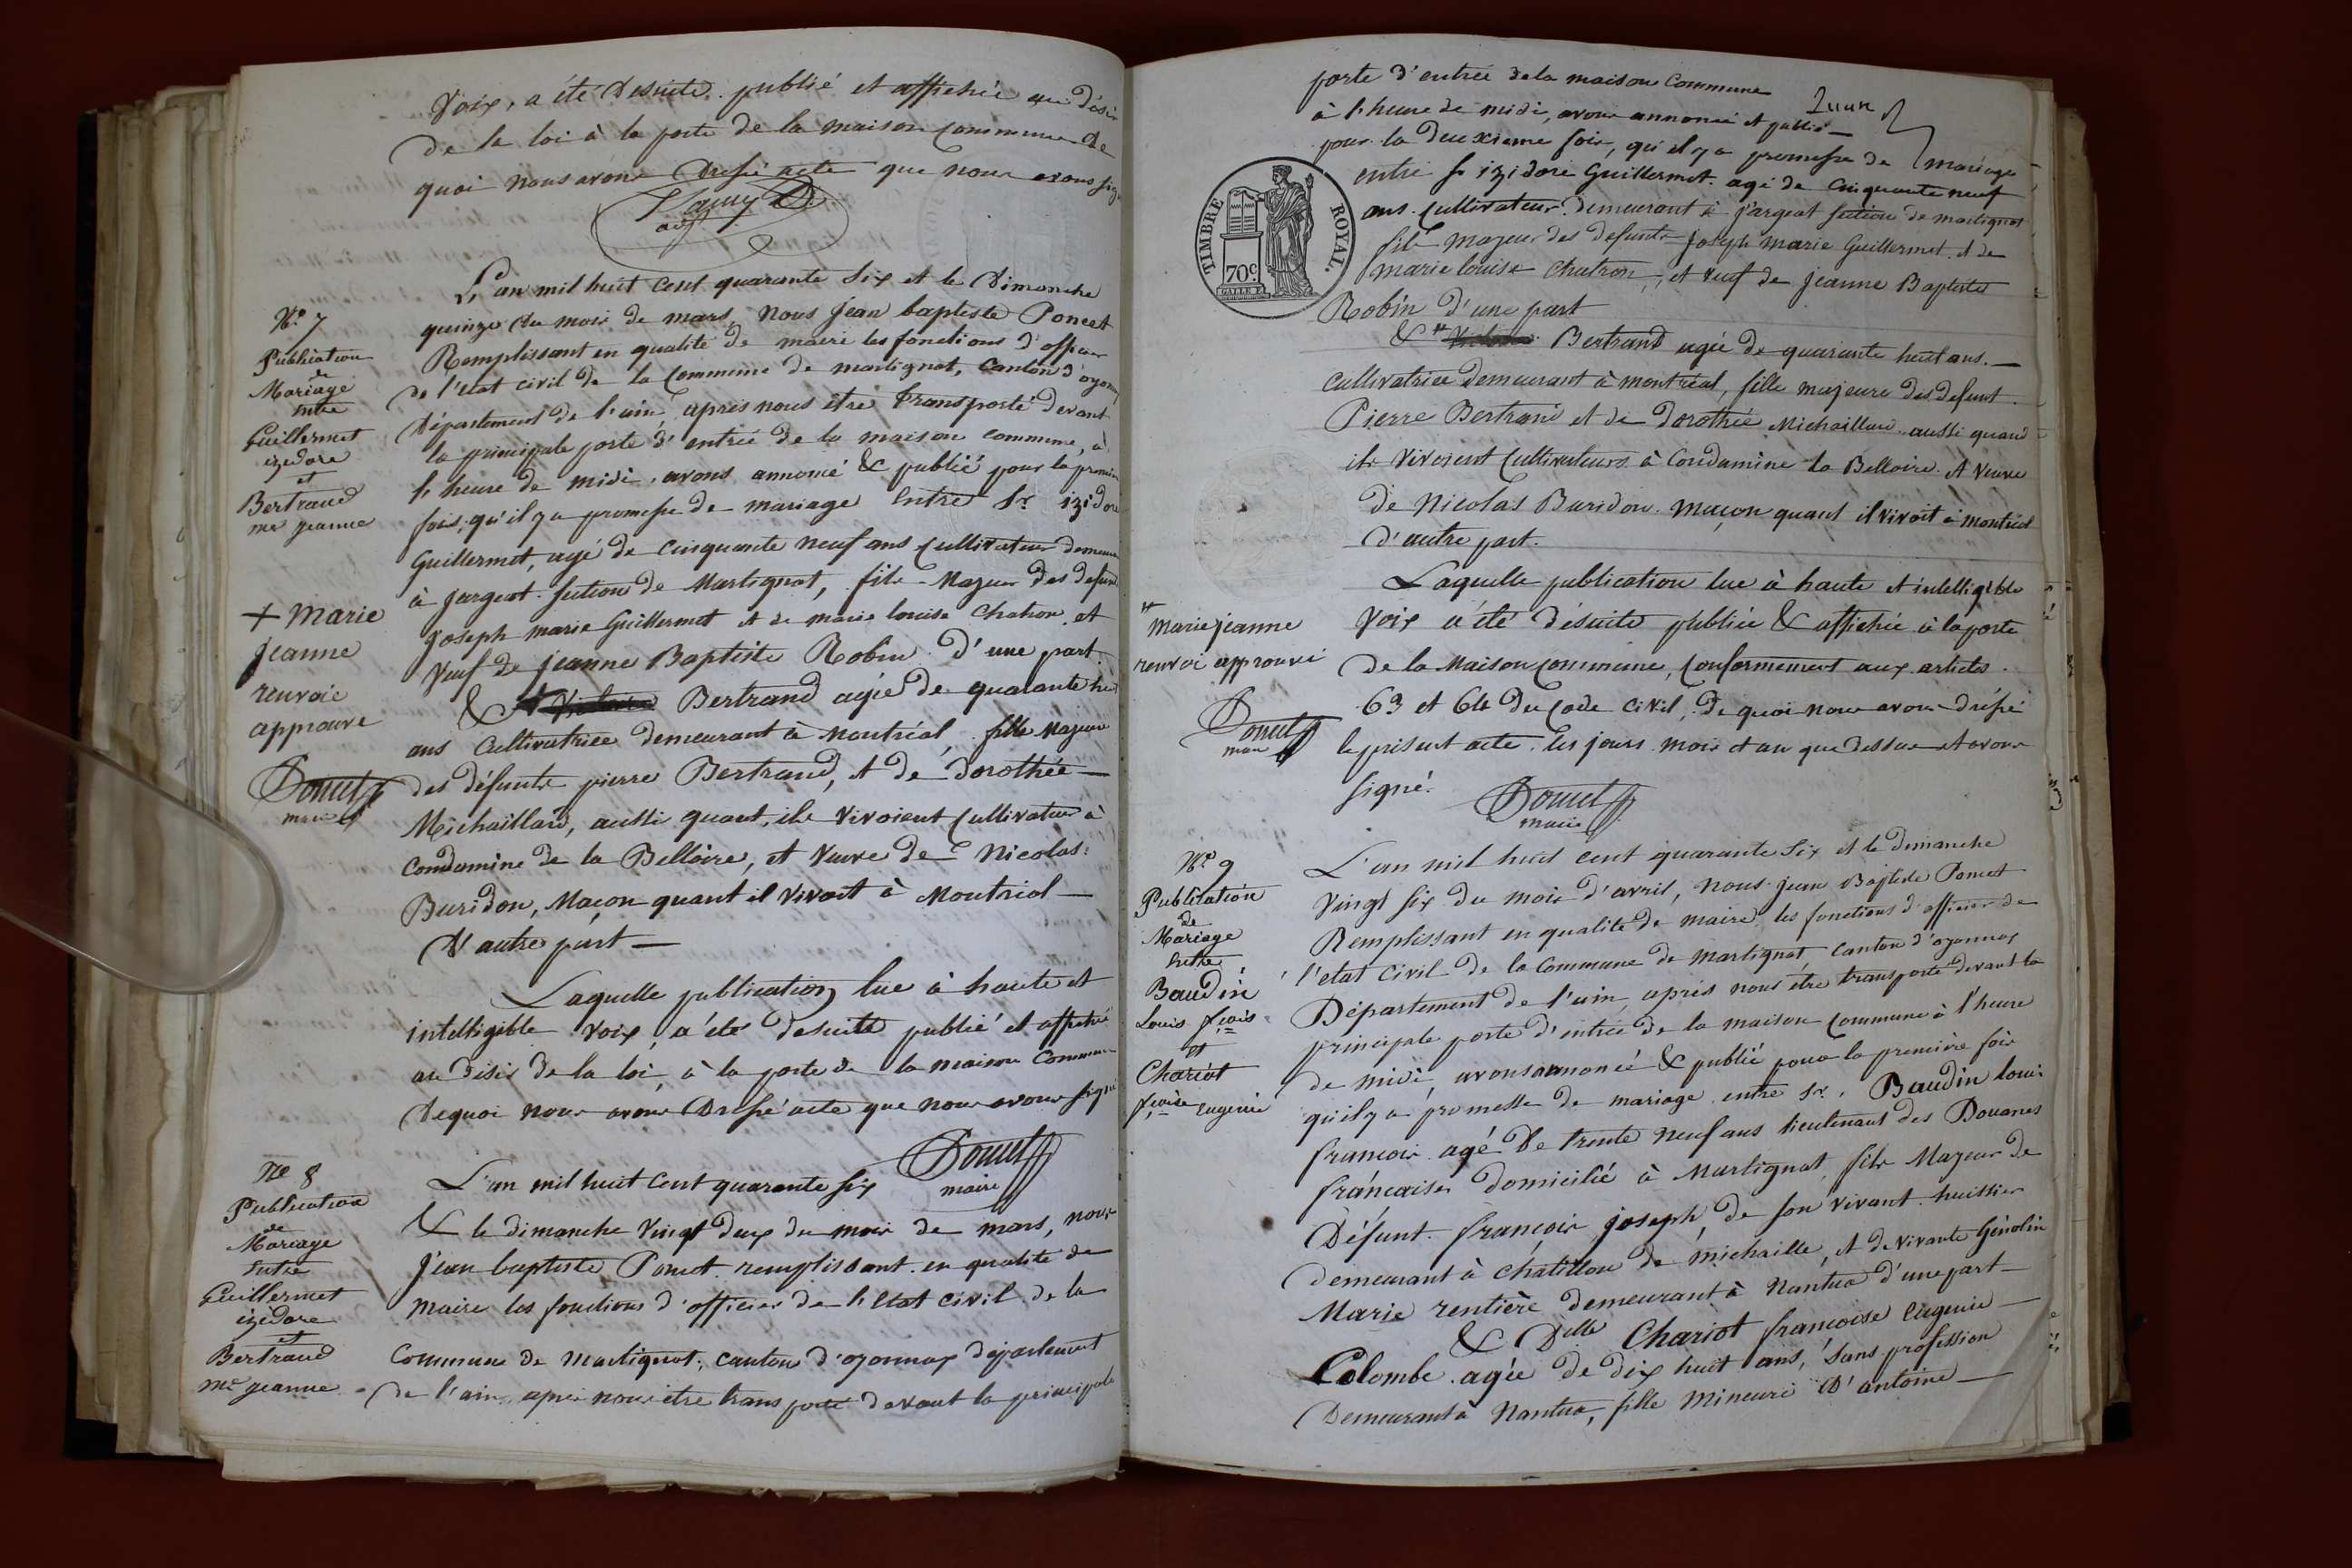 Voix, a été desuite publié et affichée au désir
de la loi à la porte de la maison commune de
quoi nous avons dressé acte que nous avons signé
adj
N.º 7
Publication
de
Mariage
entre
Guillermet
izidore
et
Bertrand
me jeanne
L'an mil huit cent quarante six et le Dimanche
quinze du mois de mars, nous jean baptiste Poncet
Remplissant en qualité de maire les fonctions d'officier
de l'état civil de la Commune de martignat, Canton d'oyonnax
Département de l'ain, après nous être transporté devant
la principale porte d'entrée de la maison commune, à
l'heure de midi, avons annoncé & publié pour la première
fois, qu'il y a promesse de mariage entre Sr. izidore
Guillermet, agé de cinquante neuf ans cultivateur demeurant
à jargeat section de Martignat, fils Majeur des defunts
joseph marie Guillermet et de marie louise Chatron, et
Veuf de jeanne Baptiste Robin d'une part.
& + Bertrand agée de quarante huit
ans Cultivatrice demeurant à montréal, fille Majeure
des défunts pierre Bertrand, et de dorothée
Michaillard, aussi quant ils vivoient cultivateurs à
Condamine de la Belloire, et veuve de Nicolas
Buridon, Maçon quant il vivoit à Montréal
D'autre part
+ Marie
jeanne
renvoie
approuve
Poncet
maire
Laquelle publication lue à haute et
intelligible voix, a été desuite publié et affichée
au désir de la loi, à la porte de la maison Commune
De quoi nous avons Dressé acte que nous avons signé
Poncet
maire
Nº 8
Publication
de
Mariage
entre
Guillermet
izidore
et
Bertrand
me jeanne
L'an mil huit cent quarante six
& le dimanche vingt deux du mois de mars, nous
jean baptiste Poncet remplissant en qualité de
maire les fonctions d'officier de l'état civil de la
Commune de Martignat, canton d'oyonnax département
de l'ain, après nous être transporté devant la principale
porte d'entrée de la maison Commune
à l'heure de midi, avons annoncé et publié
pour la deuxieme fois, qu'il y a promesse de mariage
TIMBRE ROYAL.
70 c.
entre Sr izidore Guillermet agé de cinquante neuf
ans cultivateur demeurant à jargeat section de martignat
fils majeur des defunts joseph marie Guillermet et de
marie louise Chatron, et veuf de jeanne Baptiste
Robin d'une part
& Bertrand agée de quarante huit ans.
cultivatrice demeurant à montréal, fille majeure des defunt
Pierre Bertrand et de dorothée Michaillard aussi quand
ils vivoient cultivateurs à Condamine la Belloire et veuve
de Nicolas Buridon maçon quant il vivoit à montréal
d'autre part.
Laquelle publication lue à haute et intelligible
voix a été désuite publiée & affichée à la porte
de la Maison commune, conformement aux articles
63 et 64 du Code civil, de quoi nous avons dréssé
le présent acte les jours mois et an que dessus et avons
signé.
Poncet
maire
Marie jeanne
renvoi approuvé
Poncet
maire
Nº 9
Publication
de
Mariage
entre
Baudin
Louis fçois
et
Chariot
fçoise eugenie
L'an mil huit cent quarante six et le dimanche
vingt six du mois d'avril, nous jean Baptiste Poncet
Remplissant en qualité de maire les fonctions d'officier de
l'état civil de la Commune de Martignat, canton d'oyonnax
Département de l'ain, après nous être transporté devant la
principale porte d'entrée de la maison commune à l'heure
de midi, avons annoncé & publié pour la première fois
qu'il y a promesse de mariage entre Sr. Baudin louis
francois agé de trente neuf ans lieutenant des Douanes
francaises domicilié à Martignat, fils Majeur de
Défunt françois joseph, de son vivant huissier
demeurant à chatillon de michaille, et de vivante Génolin
Marie rentière demeurant à Nantua d'une part
& Delle Chariot francoise eugenie
Colombe agée de dix huit ans, sans profession
Demeurant à Nantua, fille mineure d'antoine